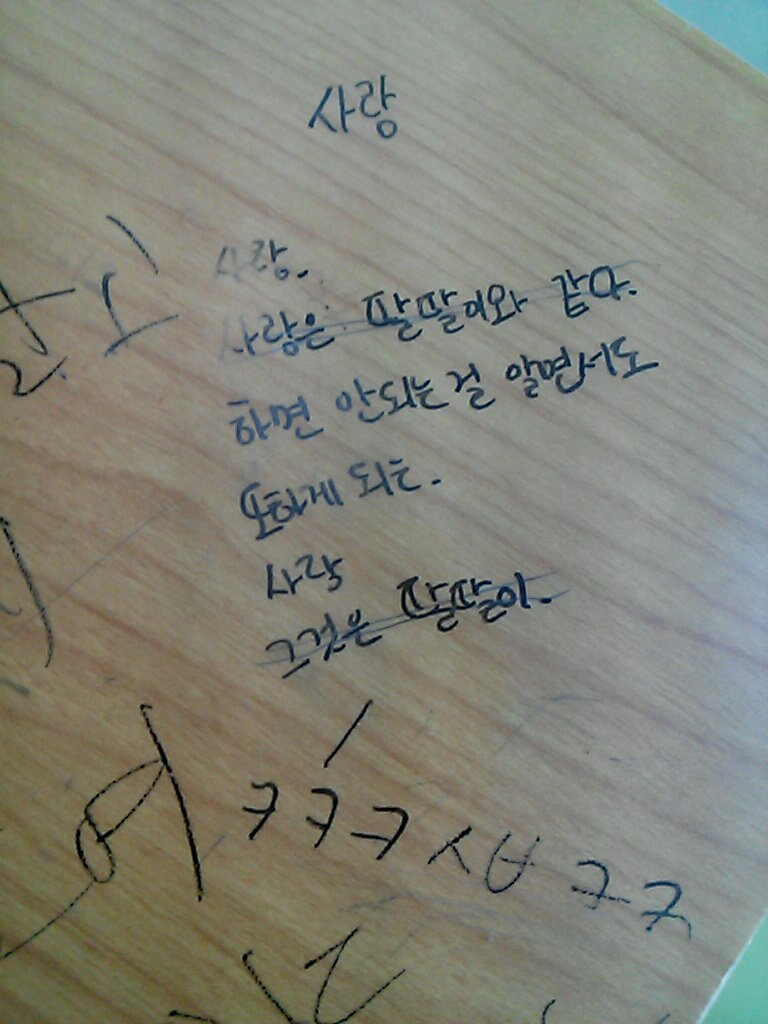 사랑
사랑.
사랑은 딸딸이와 같다.
하면 안되는걸 알면서도
또하게 되는.
사랑
그것은 딸딸이.
ㅋㅋㅋ ㅅㅂ ㅋㅋ